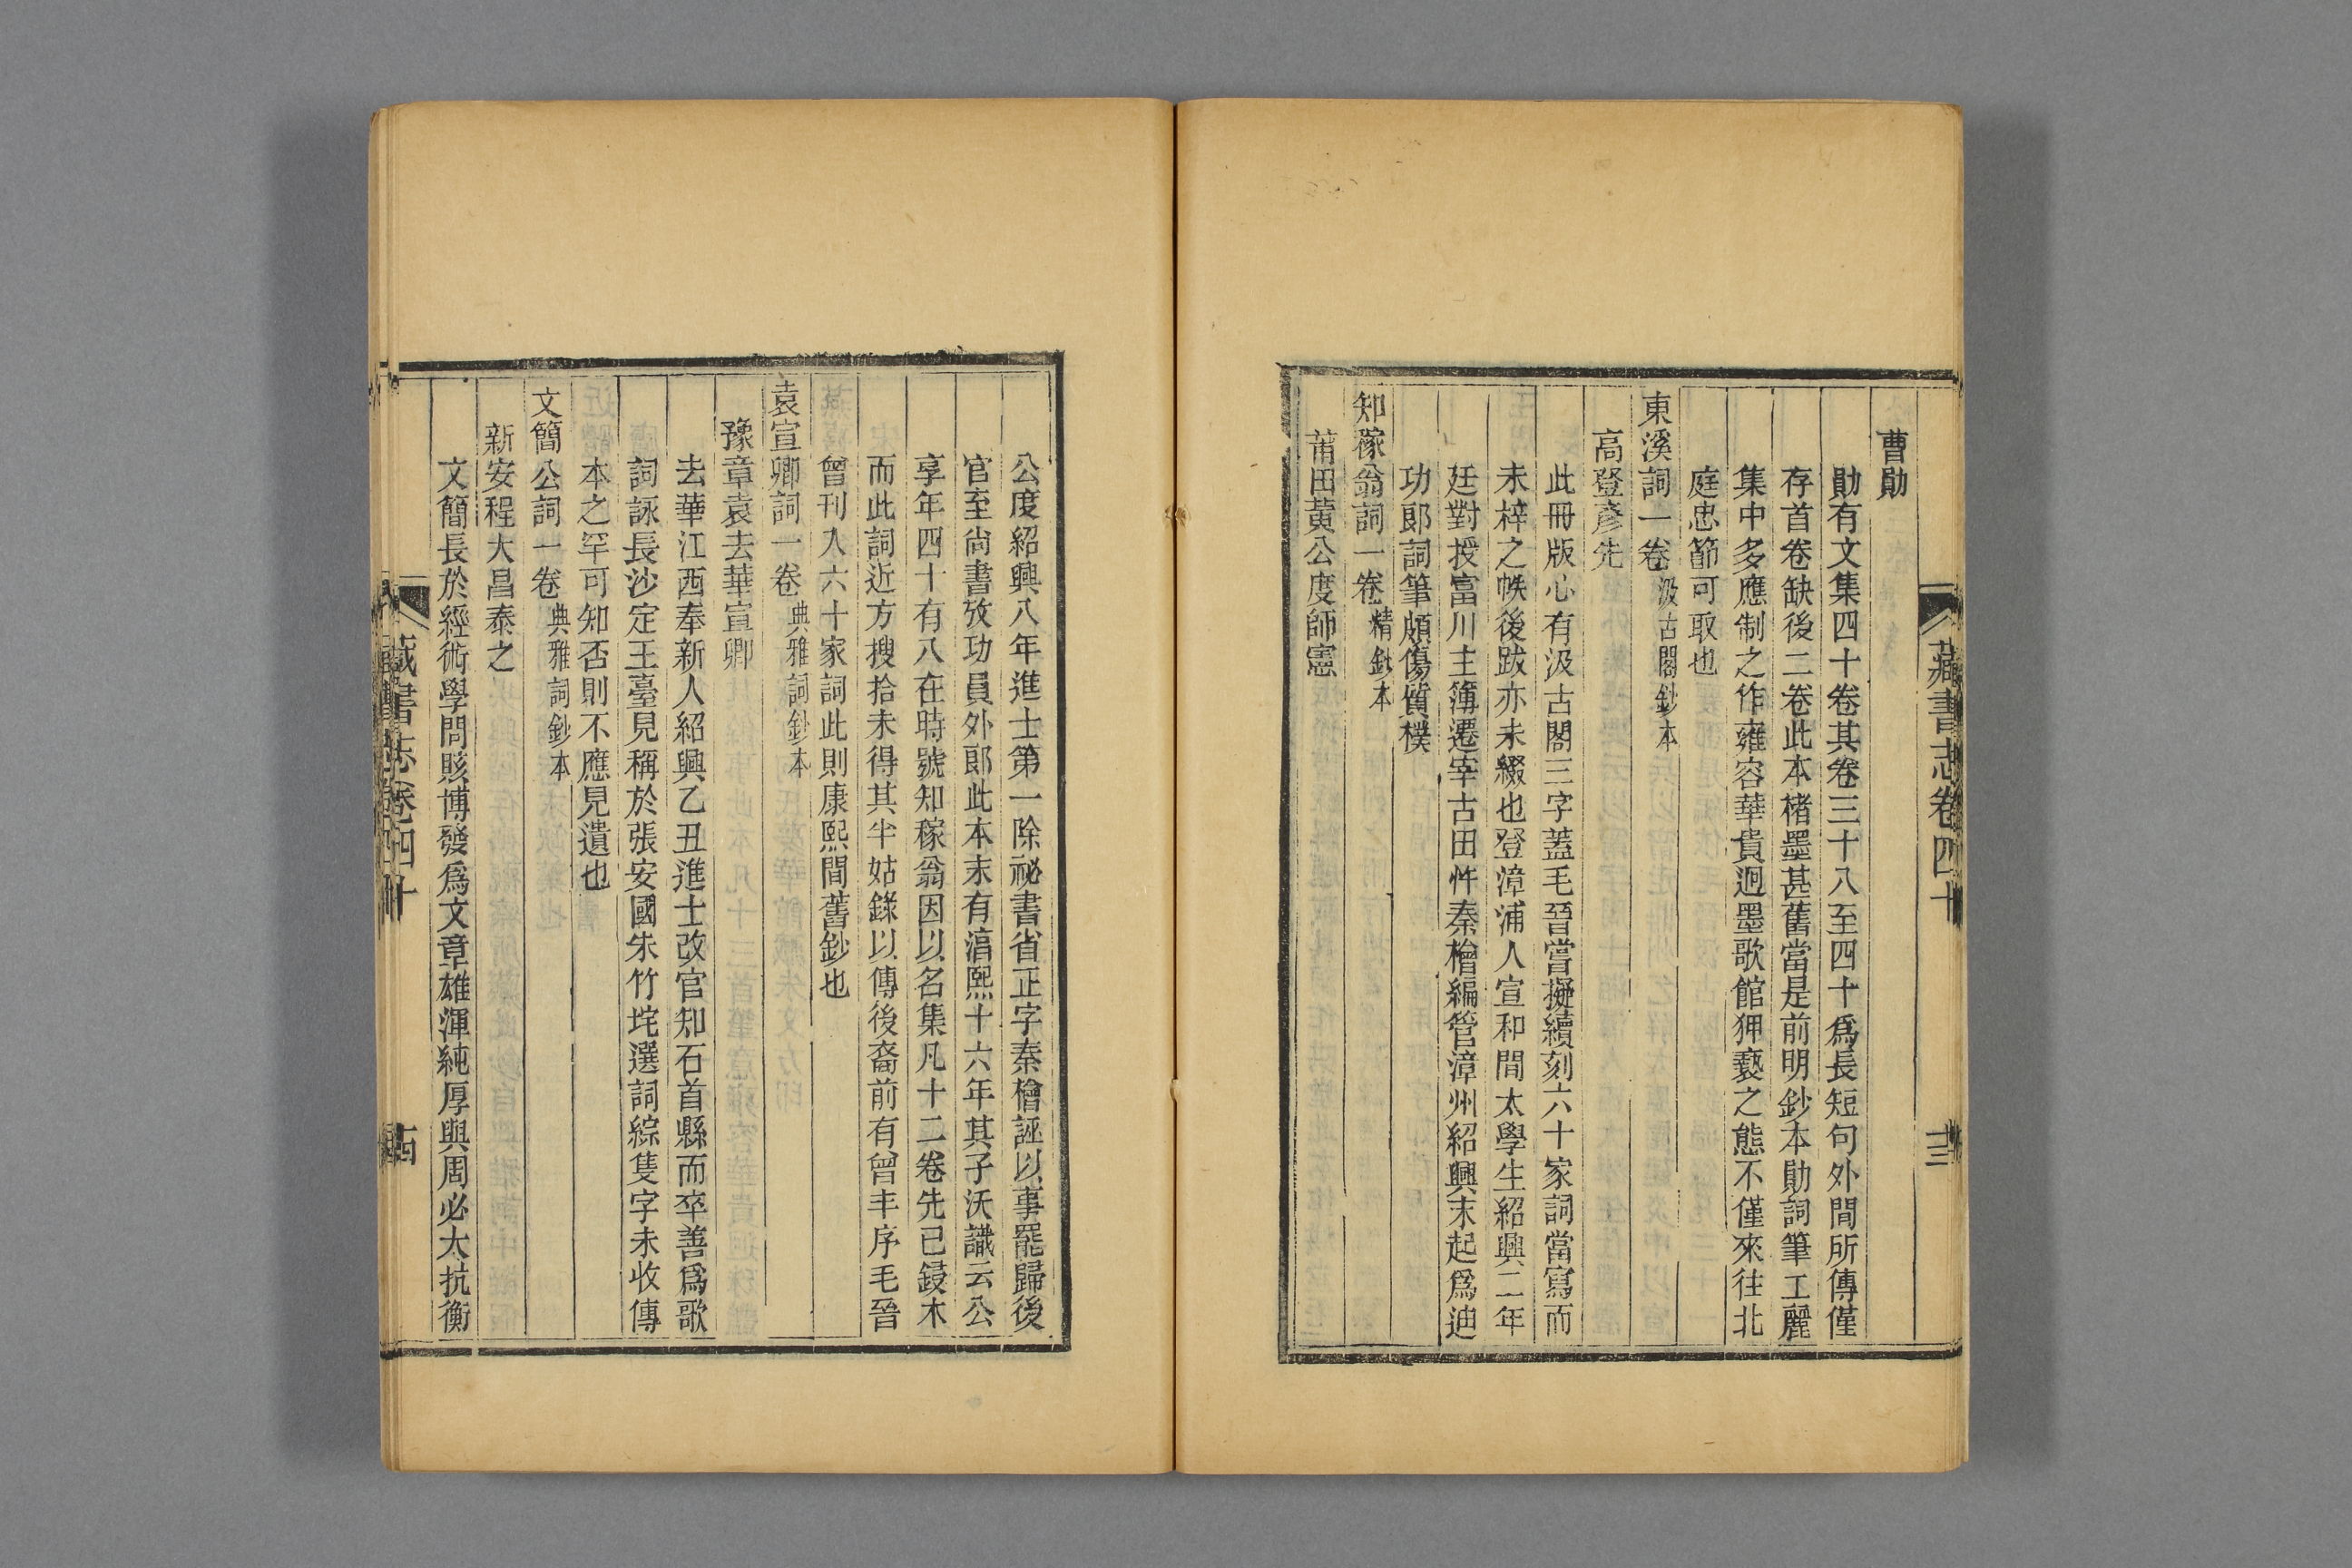 藏書志卷四十
十三
曹勛
勛有文集四十卷其卷三十八至四十爲長短句外間所傳僅
存首卷缺後二卷此本楮墨甚舊當是前明鈔本勛詞筆工麗
集中多應制之作雍容華貴迥墨歌館狎褻之態不僅來往北
庭忠節可取也
東溪詞一卷 汲古閣鈔本
高登彥先
此冊版心有汲古閣三字蓋毛晉嘗擬續刻六十家詞當寫而
未梓之帙後跋亦未綴也登漳浦人宣和間太學生紹興二年
廷對授富川主簿遷宰古田忤秦檜編管漳州紹興末起爲迪
功郎詞筆頗傷質樸
知稼翁詞一卷 精鈔本
莆田黃公度師憲
公度紹興八年進士第一除祕書省正字秦檜誣以事罷歸後
官至尚書攷功員外郎此本末有淳熙十六年其子沃識云公
享年四十有八在時號知稼翁因以名集凡十二卷先已鋟木
而此詞近方搜拾未得其半姑錄以傳後裔前有曾丰序毛晉
曾刊入六十家詞此則康熙間舊鈔也
袁宣卿詞一卷 典雅詞鈔本
豫章袁去華宣卿
去華江西奉新人紹興乙丑進士改官知石首縣而卒善爲歌
詞詠長沙定王臺見稱於張安國朱竹垞選詞綜隻字未收傳
本之罕可知否則不應見遺也
文簡公詞一卷 典雅詞鈔本
新安程大昌泰之
文簡長於經術學問賅博發爲文章雄渾純厚與周必大抗衡
藏書志卷四十
十四